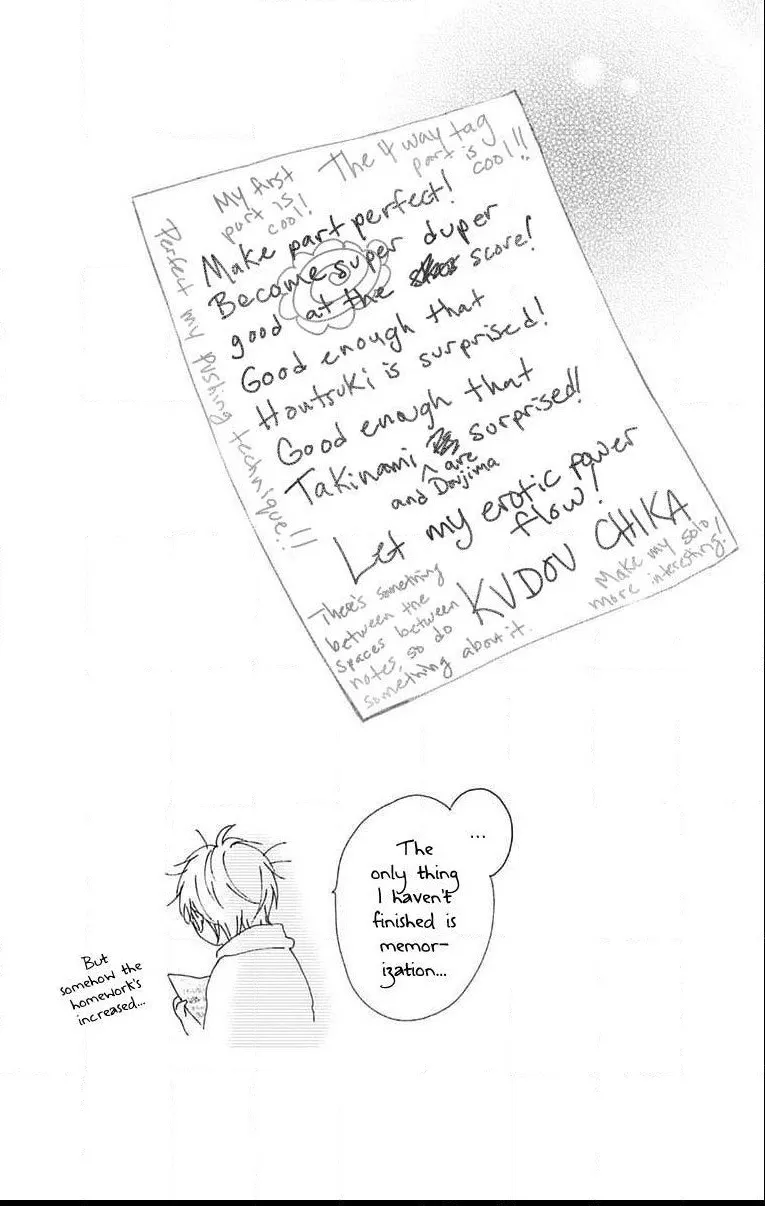 My first
part is
cool!
The 4 way tag
part is
cool!!
Perfect my pushing technique!!
Make part perfect!
Become super duper
good at the score!
Good enough that
Houtsuki is surprised!
Good enough that
Takinami surprised!
^ are
and Doujima
Let my erotic power
flow!
KUDOU CHIKA
There's something
between the
spaces between
notes, so do
something about it.
Make my solo
more interesting!
...
The
only thing
I haven't
finished is
memor-
ization...
But
somehow the
homework's
increased...